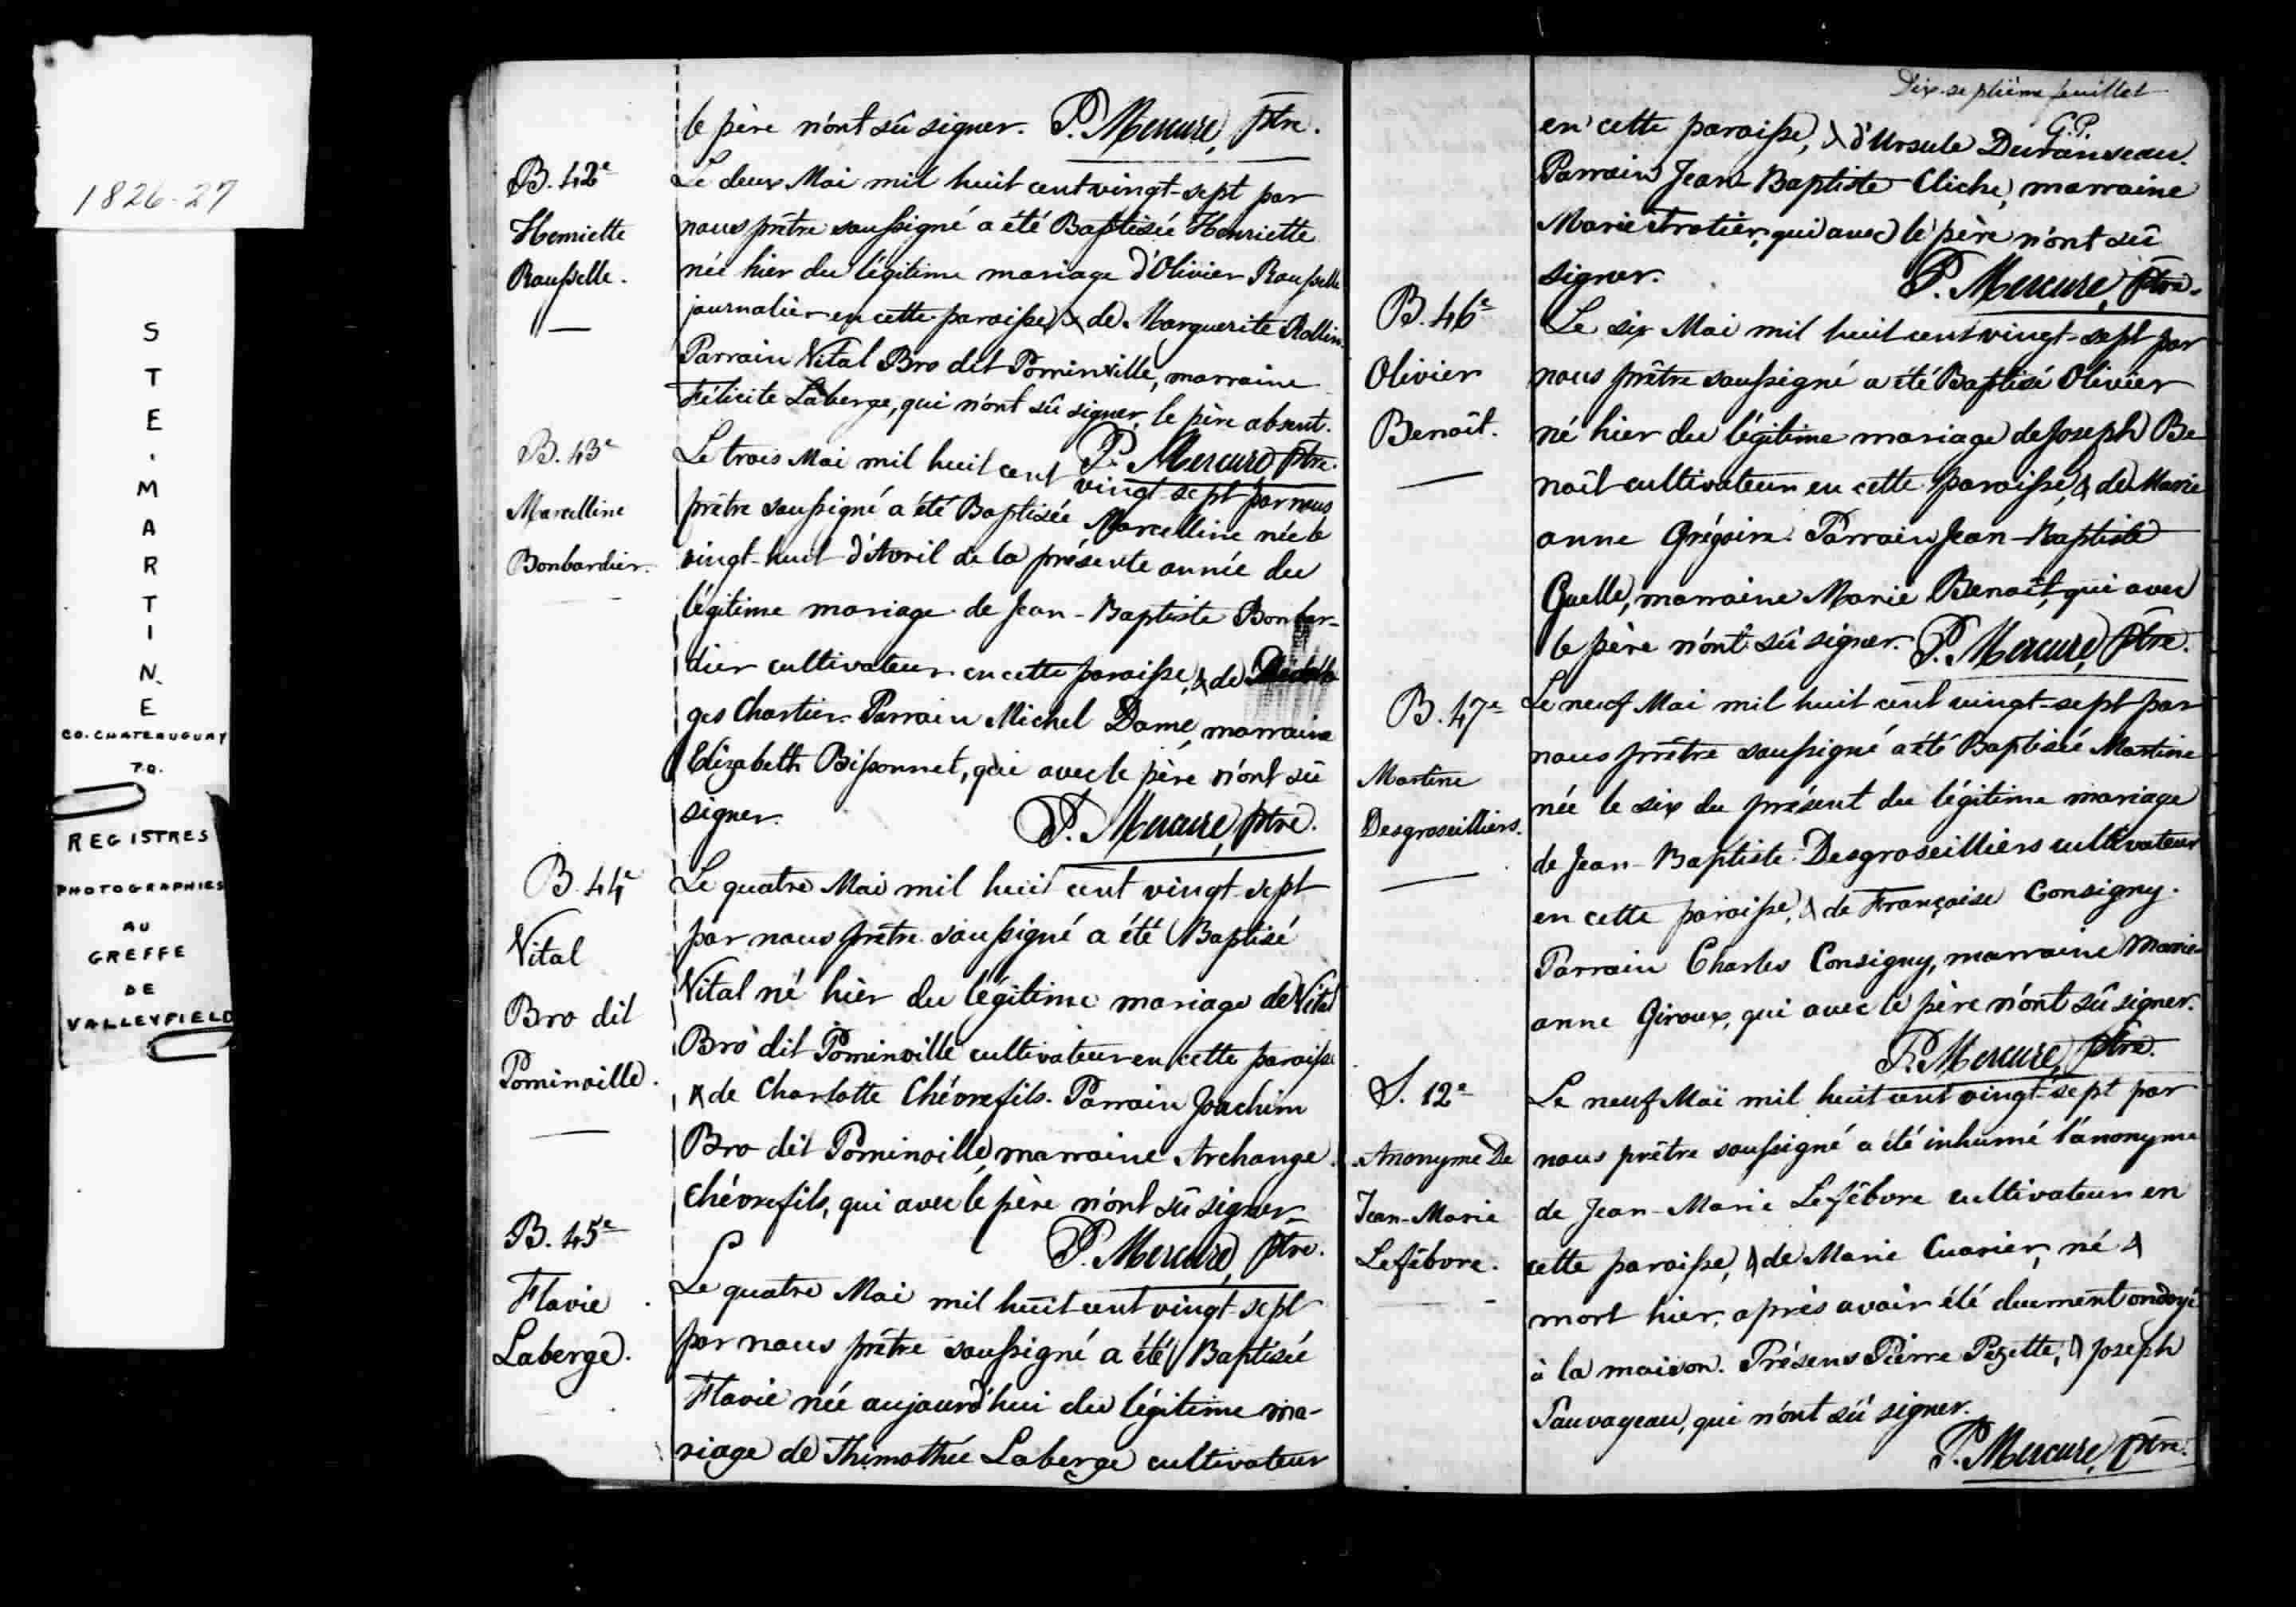 1826-27
STE. MARTINE
CO. CHATEAUGUAY
P.Q.
REGISTRES
PHOTOGRAPHIES
AU
GREFFE
DE
VALLEYFIELD
le père n'ont sû signer. P. Mercure, Ptre.
B. 42e
Henriette
Rousselle.
Le deux Mai mil huit cent vingt-sept par
nous prêtre soussigné a été Baptisée Henriette
née hier du légitime mariage d'Olivier Rousselle
journalier en cette paroisse, & de Marguerite Rollin.
Parrain Vital Bro dit Pominville, marraine
Félicité Laberge, qui n'ont sû signer, le père absent.
P. Mercure Ptre.
B. 43e
Marcelline
Bonbardier.
Le trois Mai mil huit cent vingt-sept par nous
prêtre soussigné a été Baptisée Marcelline née le
vingt-huit d'Avril de la présente année du
légitime mariage de Jean-Baptiste Bonbar-
dier cultivateur en cette paroisse, & de
ges Chartier. Parrain Michel Dame, marraine
Elizabeth Bissonnet, qui avec le père n'ont sû
signer. P. Mercure, Ptre.
B. 44e
Vital
Bro dit
Pominville.
Le quatre Mai mil huit cent vingt-sept
par nous prêtre soussigné a été Baptisé
Vital né hier du légitime mariage de Vital
Bro dit Pominville cultivateur en cette paroisse
& de Charlotte Chévrefils. Parrain Joachim
Bro dit Pominville, marraine Archange
Chévrefils, qui avec le père n'ont sû signer.
P. Mercure, Ptre.
B. 45e
Flavie
Laberge.
Le quatre Mai mil huit cent vingt-sept
par nous prêtre soussigné a été Baptisée
Flavie née aujourd'hui du légitime ma-
riage de Thimothée Laberge cultivateur
Dix-septième feuillet
G.P.
en cette paroisse, & d'Ursule Duranseau.
Parrain Jean-Baptiste Cliche, marraine
Marie Trotier, qui avec le père n'ont sû
signer. P. Mercure, Ptre.
B. 46e
Olivier
Benoît.
Le six Mai mil huit cent vingt-sept par
nous prêtre soussigné a été Baptisé Olivier
né hier du légitime mariage de Joseph Be
noît cultivateur en cette paroisse, & de Marie
anne Grégoire. Parrain Jean-Baptiste
Guelle, marraine Marie Benoît, qui avec
le père n'ont sû signer. P. Mercure, Ptre.
B. 47e
Martine
Desgroseilliers.
Le neuf Mai mil huit cent vingt-sept par
nous prêtre soussigné a été Baptisée Martine
née le six du présent du légitime mariage
de Jean-Baptiste Desgroseilliers cultivateur
en cette paroisse, & de Françoise Consigny.
Parrain Charles Consigny, marraine Marie-
anne Giroux, qui avec le père n'ont sû signer.
P. Mercure, Ptre.
S. 12e
Anonyme De
Jean-Marie
Lefêbvre.
Le neuf Mai mil huit cent vingt-sept par
nous prêtre soussigné a été inhumé l'anonyme
de Jean-Marie Lefêbvre cultivateur en
cette paroisse, & de Marie Cuarier, né &
mort hier, après avoir été duement ondoyé
à la maison. Présens Pierre Pezette, & Joseph
Sauvageau, qui n'ont sû signer.
P. Mercure, Ptre.